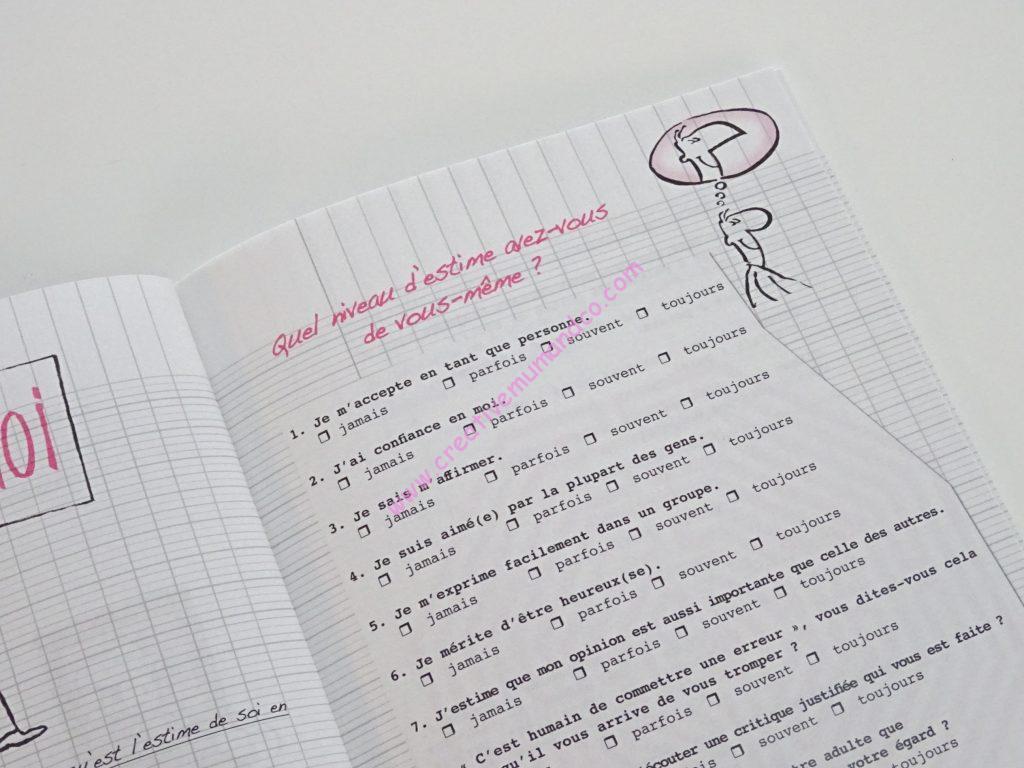 oi
u'est l'estime de soi en
Quel niveau d'estime avez-vous
de vous-même ?
1. Je m'accepte en tant que personne.
jamais parfois souvent toujours
2. J'ai confiance en moi.
jamais parfois souvent toujours
3. Je sais m'affirmer.
jamais parfois souvent toujours
4. Je suis aimé(e) par la plupart des gens.
jamais parfois souvent toujours
5. Je m'exprime facilement dans un groupe.
jamais parfois souvent toujours
6. Je mérite d'être heureux(se).
jamais parfois souvent toujours
7. J'estime que mon opinion est aussi importante que celle des autres.
jamais parfois souvent toujours
« C'est humain de commettre une erreur », vous dites-vous cela
qu'il vous arrive de vous tromper ?
parfois souvent toujours
écouter une critique justifiée qui vous est faite ?
souvent toujours
adulte que
votre égard ?
toujours
www.creativemumundco.com